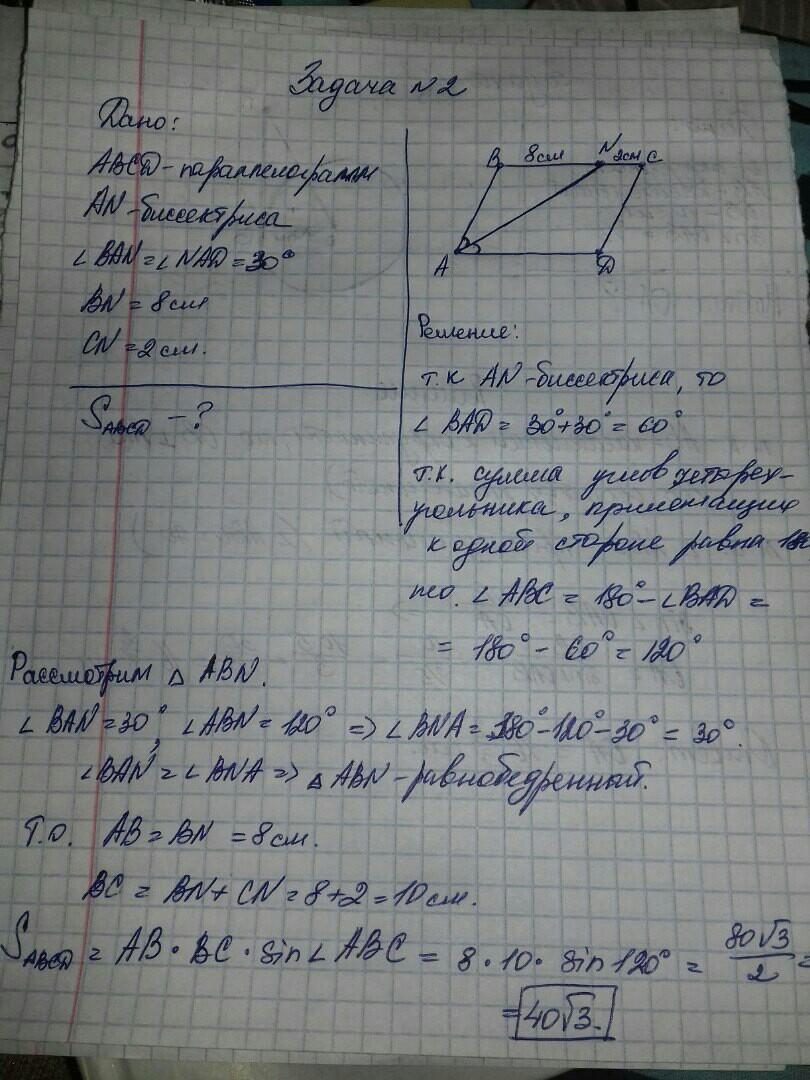 Задача №2
Дано:
ABCD - параллелограмм
AN - биссектриса
∠BAN = ∠NAD = 30°
BN = 8 см
CN = 2 см.
S_ABCD - ?
B 8 см N 2 см C
A D
Решение:
т.к AN - биссектриса, то
∠ BAD = 30° + 30° = 60°
т.к. сумма углов четырех-
угольника, прилежащих
к одной стороне равна 180
то. ∠ ABC = 180° - ∠BAD =
= 180° - 60° = 120°
Рассмотрим △ ABN.
∠ BAN = 30°, ∠ABN = 120° => ∠BNA = 180° - 120° - 30° = 30°.
∠BAN = ∠BNA => △ ABN - равнобедренный.
Т.о. AB = BN = 8 см.
BC = BN + CN = 8 + 2 = 10 см.
S_ABCD = AB · BC · sin ∠ ABC = 8 · 10 · sin 120° = 80√3/2 =
= 40√3.